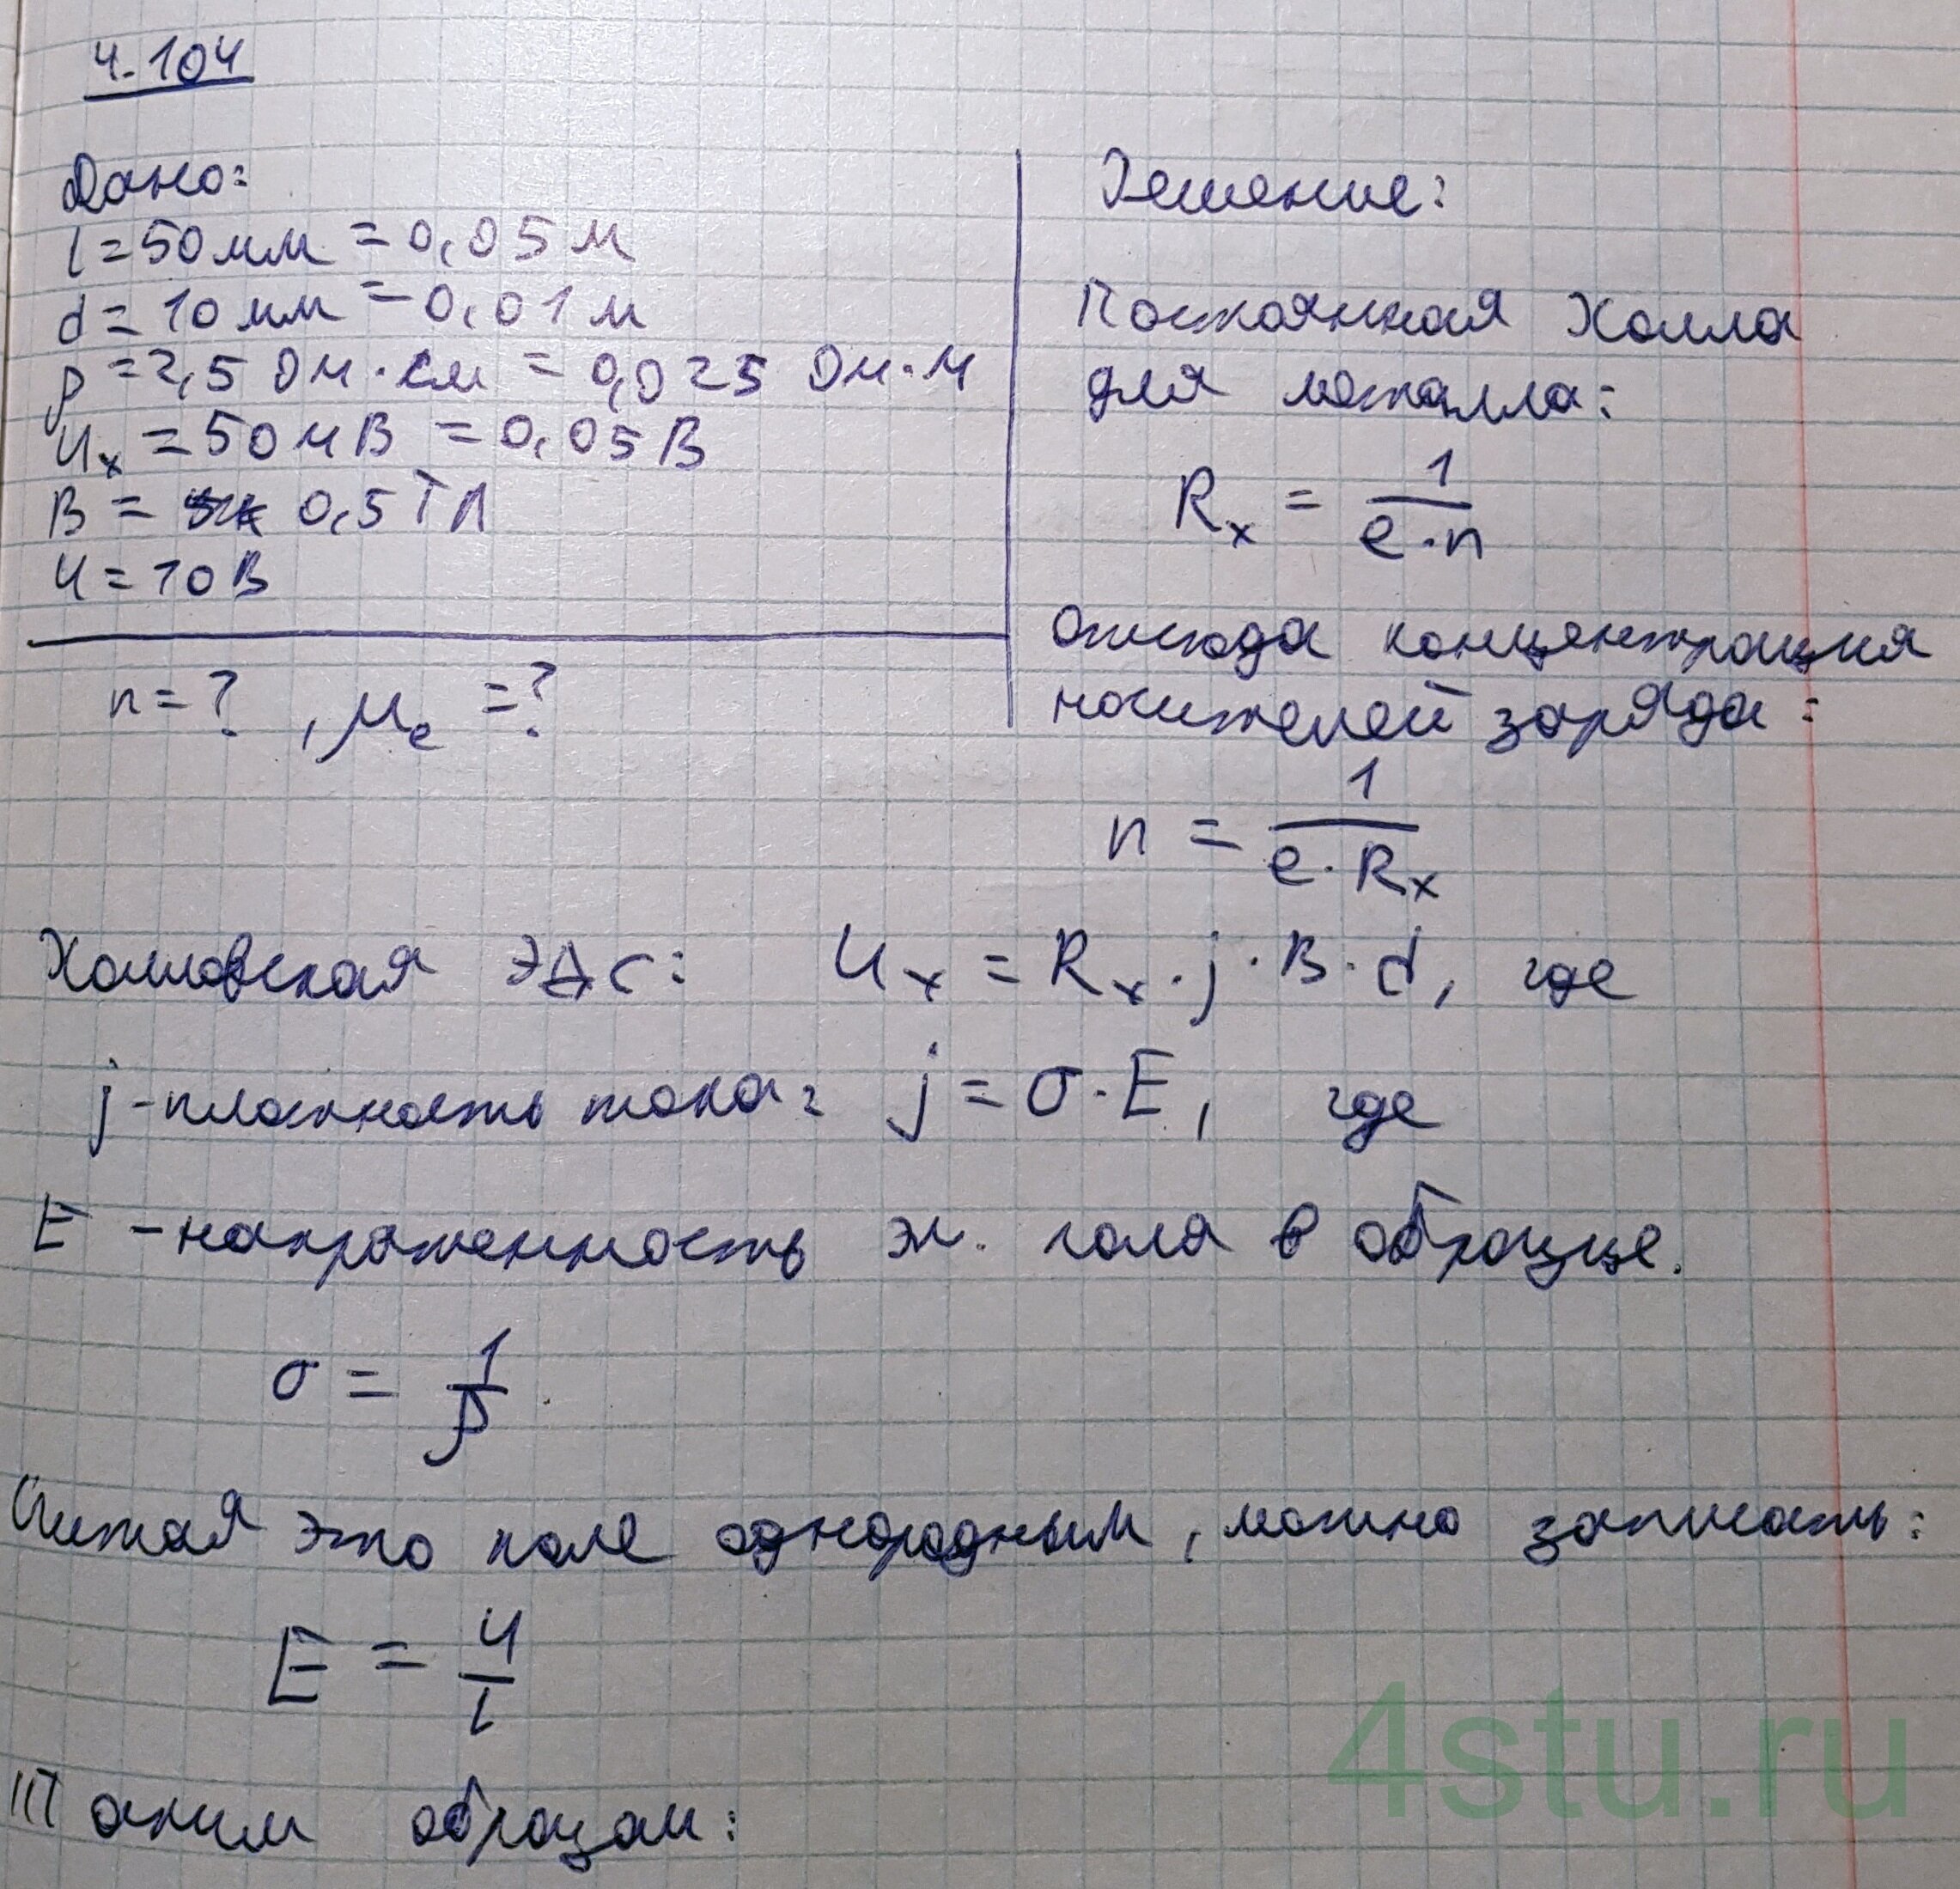 4.104
Дано:
l = 50 мм = 0,05 м
d = 10 мм = 0,01 м
ρ = 2,5 Ом·см = 0,025 Ом·м
Uₓ = 50 мВ = 0,05 В
B = 0,5 Тл
U = 10 В
n = ? , μₑ = ?
Решение:
Постоянная Холла
для металла:
Rₓ = 1/(e·n)
отсюда концентрация
носителей заряда:
n = 1/(e·Rₓ)
Холловская ЭДС: Uₓ = Rₓ·j·B·d, где
j - плотность тока: j = σ·E, где
E - напряженность эл. поля в образце.
σ = 1/ρ
Считая это поле однородным, можно записать:
E = U/l
Таким образом:
4stu.ru